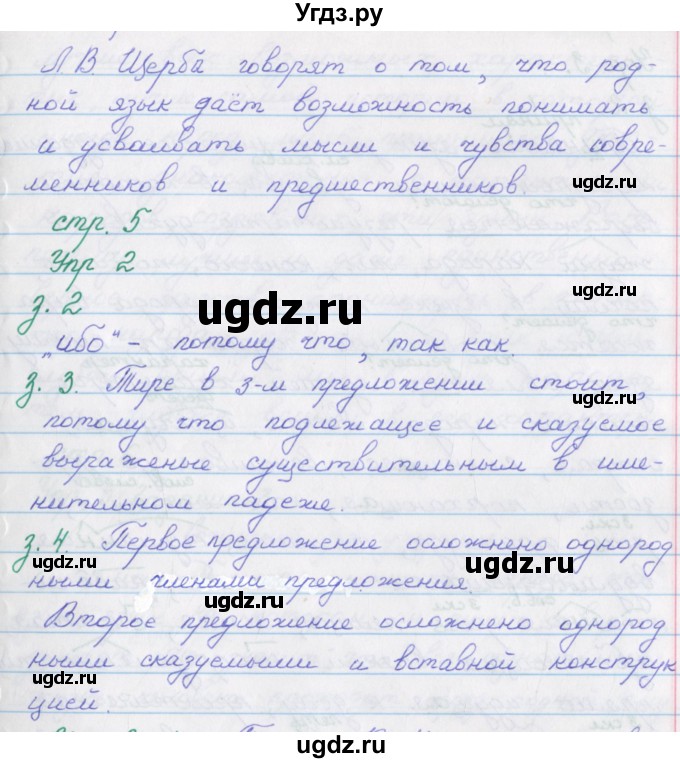 Угдз.ру
Л.В. Щерба говорят о том, что род-
ной язык даёт возможность понимать
и усваивать мысли и чувства совре-
ugdz.ru
менников и предшественников.
ugdz.ru
стр. 5
Упр 2
з. 2
ugdz.ru
„ибо“ - потому что, так как.
з. 3. Тире в 3-м предложении стоит,
ugdz.ru
потому что подлежащее и сказуемое
выраженые существительным в име-
нительном падеже.
з. 4. Первое предложение осложнено однород
ugdz.ru
ugdz.ru
ными членами предложения.
ugdz.ru
Второе предложение осложнено однород
ными сказуемыми и вставной конструк
ugdz.ru
цией.
ugdz.ru
ugdz.ru